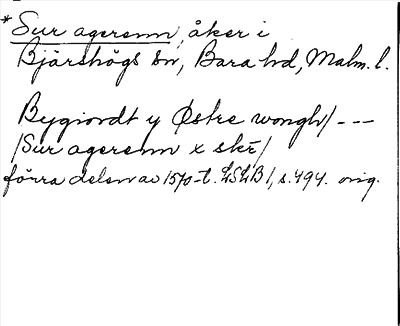 *Sur agerenn, åker i
Bjärshögs sn, Bara hd, Malm. l.
Bygiordt y Østre wongh/ - - -
/Sur agerenn x ske/
förra delen av 1570-t. LSLB 1, s. 494. orig.